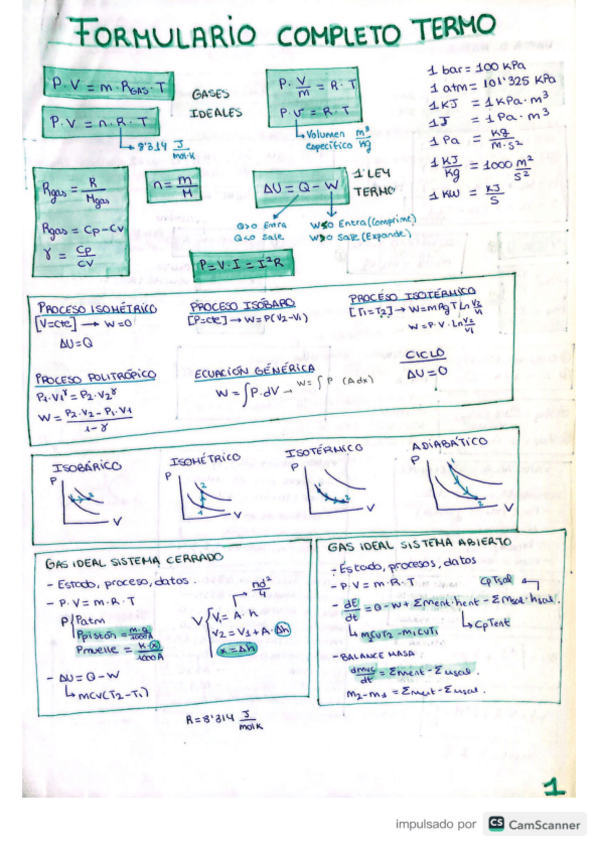 FORMULARIO COMPLETO TERMO
P·V = m·RGAS·T
P·V = n·R·T
8'314 J/mol·K
GASES IDEALES
P·V/m = R·T
P·v = R·T
Volumen específico m³/kg
1 bar = 100 KPa
1 atm = 101'325 KPa
1 KJ = 1 KPa·m³
1 J = 1 Pa·m³
1 Pa = kg/m·s²
1 KJ/Kg = 1000 m²/s²
1 KW = KJ/S
Rgas = R/Mgas
Rgas = Cp-Cv
γ = Cp/CV
n = m/M
ΔU = Q-W
1 LEY TERMO
Q>0 Entra
Q<0 Sale
Entra (comprime)
Sale (Expande)
P=V·I = I²R
PROCESO ISOMÉTRICO
[V=cte] → W=0
ΔU=Q
PROCESO ISÓBARO
[P=cte] → W=P(V2-V1)
PROCESO ISOTÉRMICO
[T1=T2] → W=mRgT Ln V2/V1
W=P·V·Ln V2/V1
PROCESO POLITRÓPICO
P1·V1^γ = P2·V2^γ
W = P2·V2-P1·V1/1-γ
ECUACIÓN GÉNÉRICA
W = ∫P·dV → W=∫P (Adx)
CICLO
ΔU=0
ISOBÁRICO
P
V
ISOMÉTRICO
P
V
ISOTÉRMICO
P
V
ADIABÁTICO
P
V
GAS IDEAL SISTEMA CERRADO
- Estado, proceso, datos.
- P·V = m·R·T
P Patm
Ppistón = m·g/1000A
Pmuelle = K·(x)/1000A
πd²/4
V V1 = A·h
V2 = V1+A·Δh
x=Δh
- ΔU = Q-W
mCV(T2-T1)
R=8'314 J/molK
GAS IDEAL SISTEMA ABIERTO
- Estado, procesos, datos
- P·V = m·R·T
CpTsal
- dE/dt = Q-W+Σment·hent-Σmsal·hsal.
CpTent
m2CVT2-m1CVT1
- BALANCE MASA:
dmvc/dt = Σment-Σmsal.
m2-m1 = Σment-Σmsal.
1
impulsado por CS CamScanner